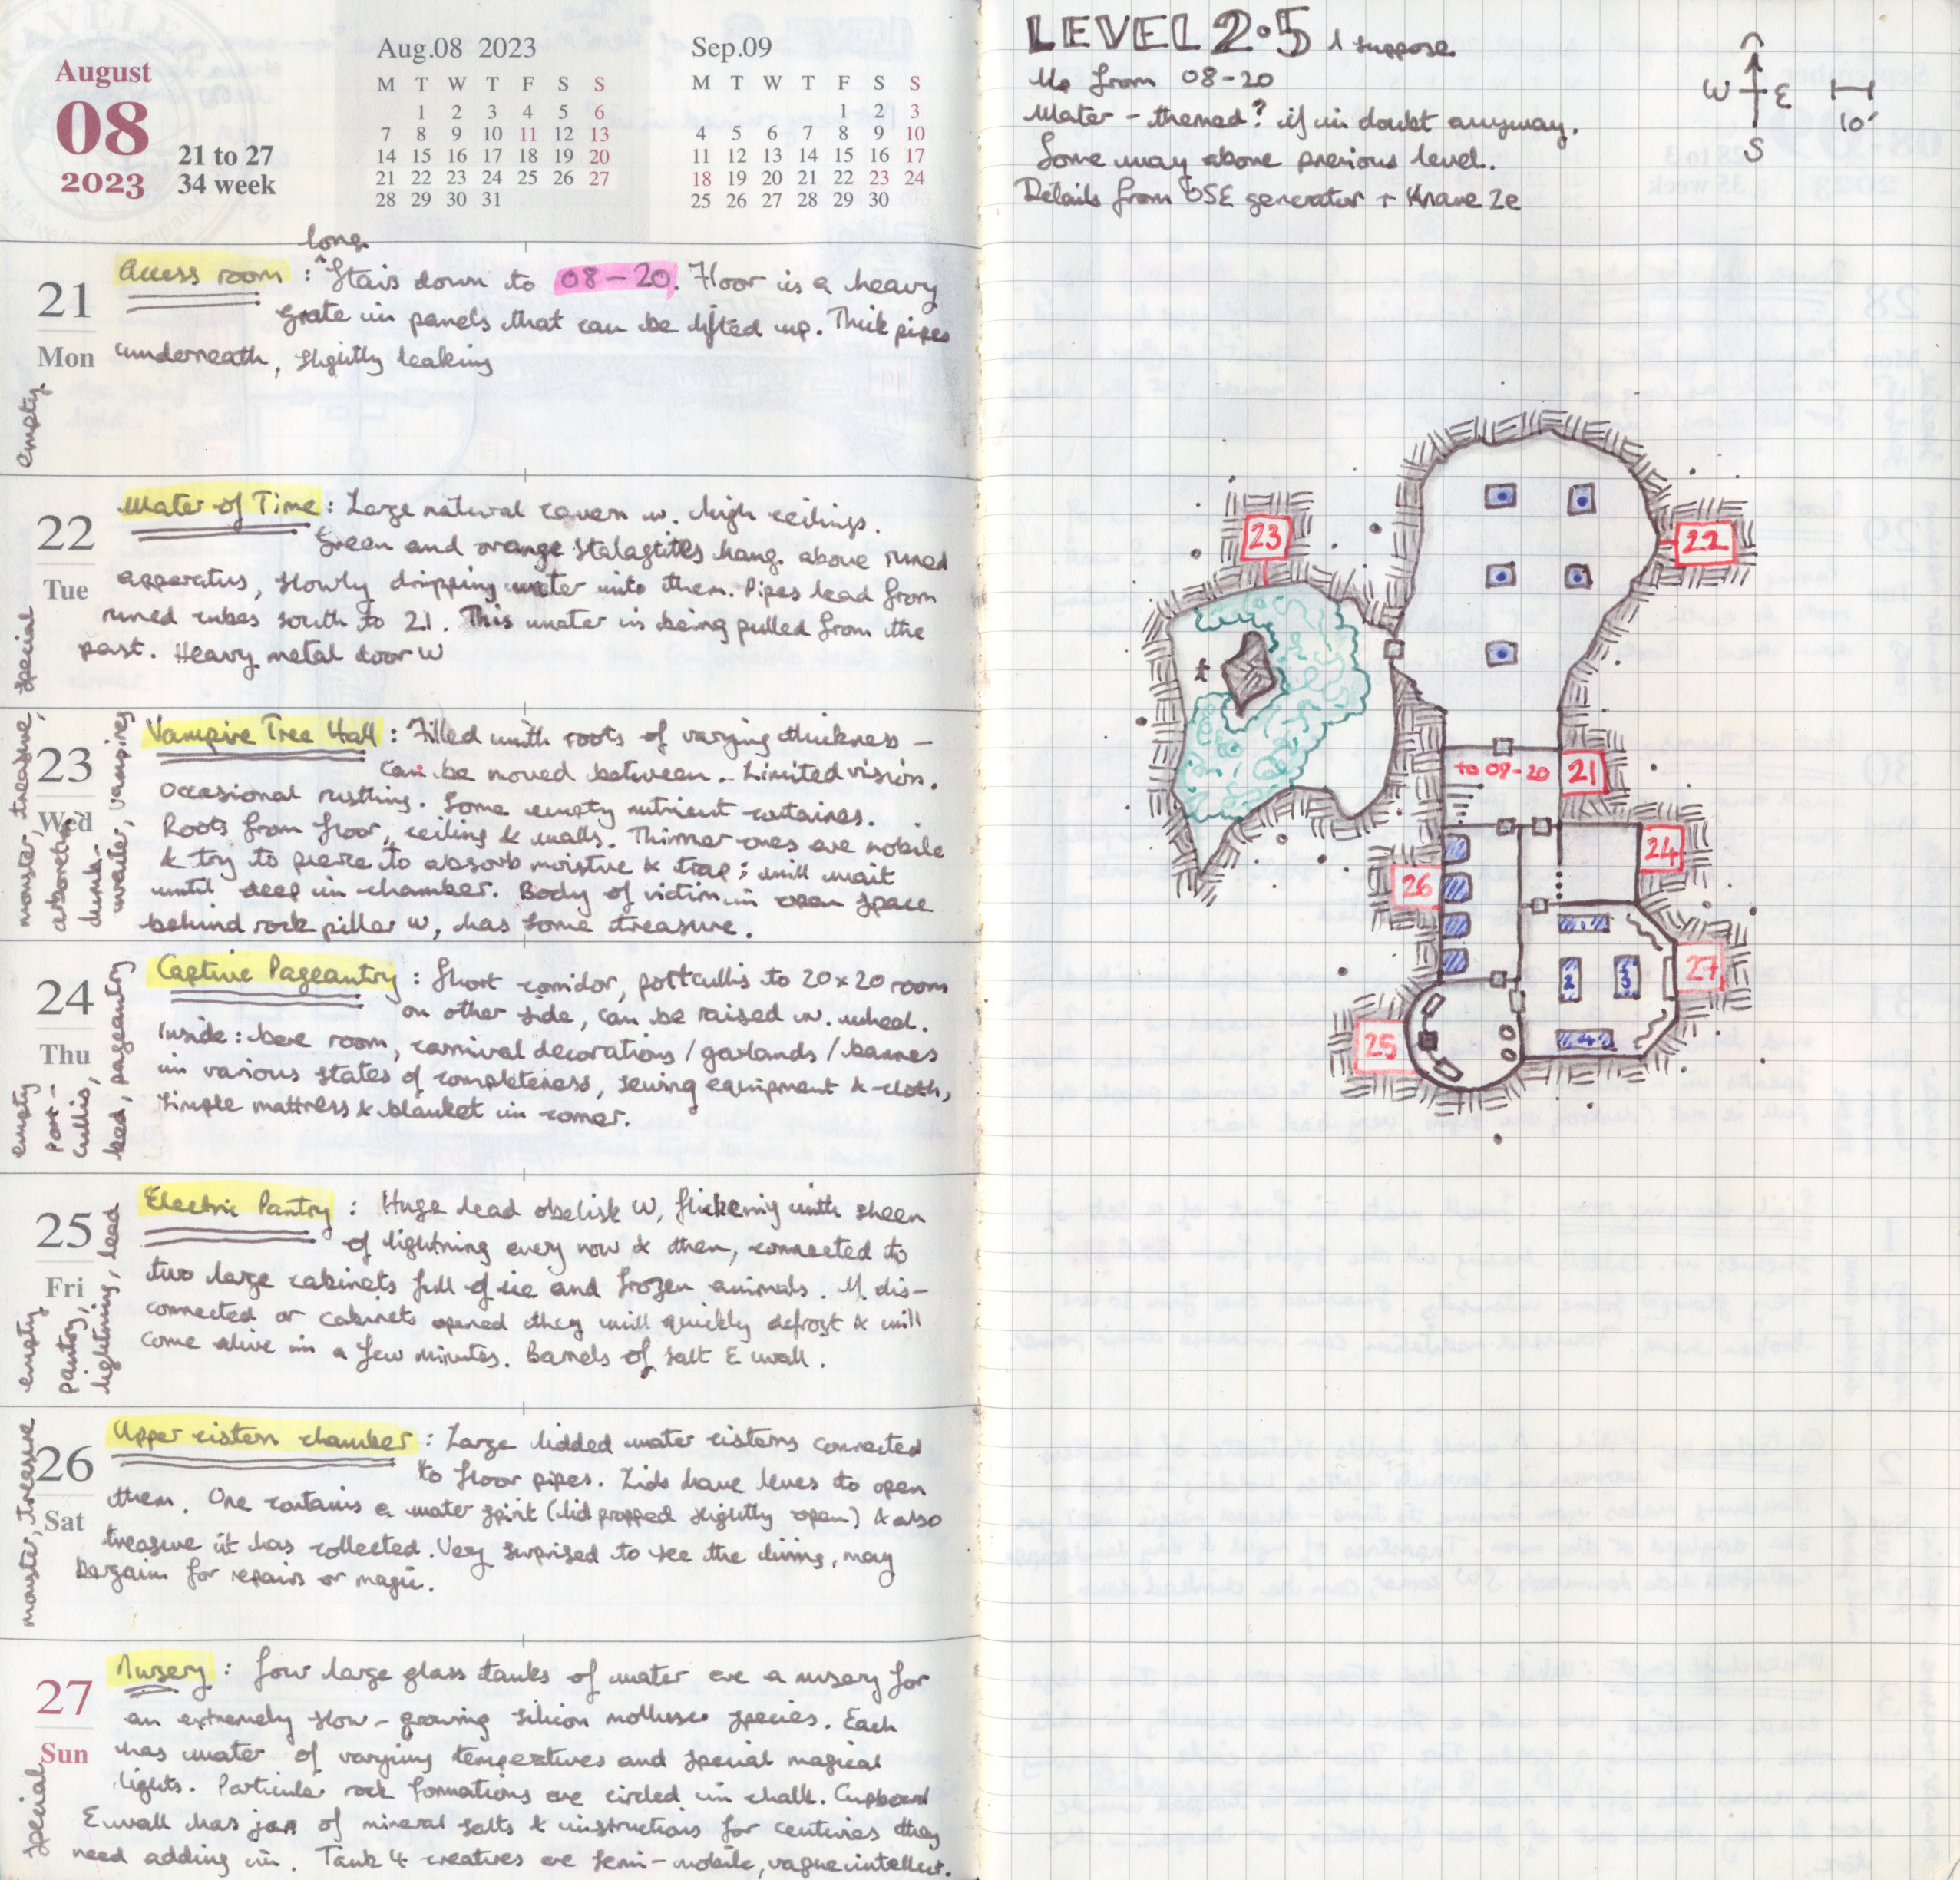 August
08
2023
21 to 27
34 week
Aug.08 2023
M T W T F S S
1 2 3 4 5 6
7 8 9 10 11 12 13
14 15 16 17 18 19 20
21 22 23 24 25 26 27
28 29 30 31
Sep.09
M T W T F S S
1 2 3
4 5 6 7 8 9 10
11 12 13 14 15 16 17
18 19 20 21 22 23 24
25 26 27 28 29 30
21
Mon
empty
long
Access room : ^Stairs down to 08-20. Floor is a heavy
grate in panels that can be lifted up. Thick pipes
underneath, slightly leaking
22
Tue
special
Water of Time : Large natural cavern w. high ceilings.
Green and orange stalagtites hang above runed
apparatus, slowly dripping water into them. Pipes lead from
runed cubes south to 21. This water is being pulled from the
past. Heavy metal door W
23
Wed
monster, treasure,
arboretum,
drunk-
water, vampires
Vampire Tree Hall : Filled with roots of varying thickness -
can be moved between. Limited vision.
Occasional rustling. Some empty nutrient containers.
Roots from floor, ceiling & walls. Thinner ones are mobile
& try to pierce to absorb moisture & trap; will wait
until deep in chamber. Body of victim in open space
behind rock pillar W, has some treasure.
24
Thu
empty
port-
cullis,
lead, pageantry
Captive Pageantry : Short corridor, portcullis to 20x20 room
on other side, can be raised w. wheel.
Inside: bare room, carnival decorations / garlands / banners
in various states of completeness, sewing equipment & cloth,
simple mattress & blanket in corner.
25
Fri
empty
pantry,
lightning, lead
Electric Pantry : Huge lead obelisk W, flickering with sheen
of lightning every now & then, connected to
two large cabinets full of ice and frozen animals. If dis-
connected or cabinets opened they will quickly defrost & will
come alive in a few minutes. Barrels of salt E wall.
26
Sat
monster, treasure
Upper cistern chamber : Large lidded water cisterns connected
to floor pipes. Lids have levers to open
them. One contains a water spirit (lid propped slightly open) & also
treasure it has collected. Very surprised to see the living, may
bargain for repairs or magic.
27
Sun
special
Nursery : four large glass tanks of water are a nursery for
an extremely slow-growing silicon mollusc species. Each
has water of varying temperatures and special magical
lights. Particular rock formations are circled in chalk. Cupboard
E wall has jars of mineral salts & instructions for centuries they
need adding in. Tank 4 creatures are semi-mobile, vague intellect.
LEVEL 2.5 I suppose
Up from 08-20
Water-themed? if in doubt anyway.
Some way above previous level.
Details from OSE generator + Knave 2e
W E
S
10'
23
22
to 08-20
21
24
26
27
25
1
2
3
4